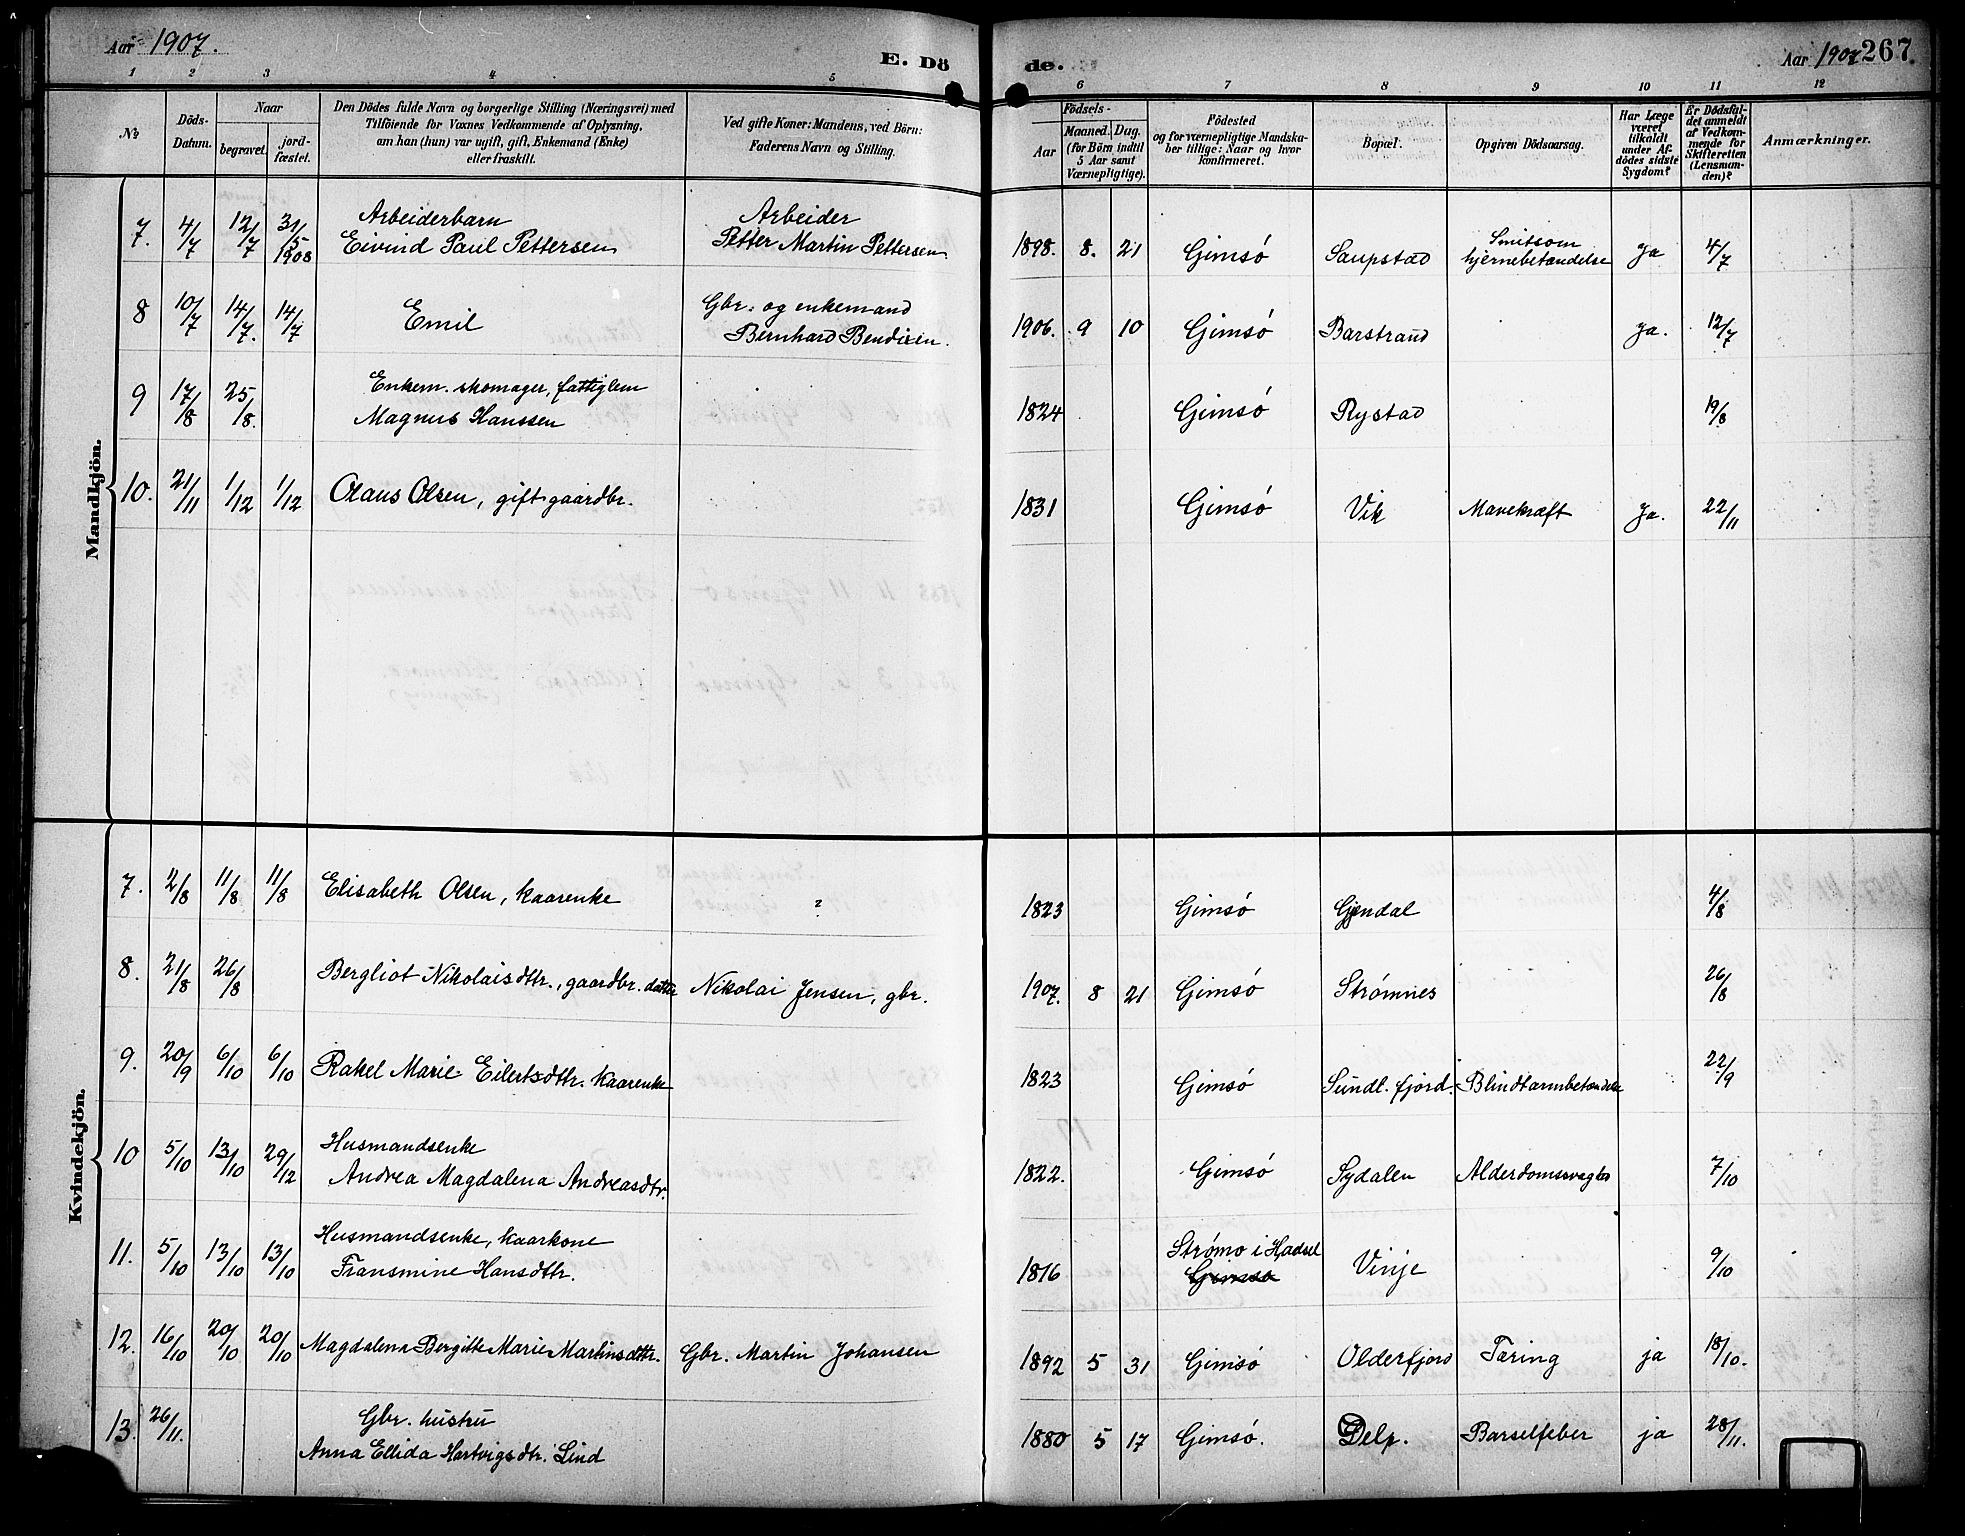 Aar 1907.
E. Dö
de.
Aar 1907
267.
1 2 3 4 5
6 7 8 9 10 11 12
No
Döds-
Datum.
Naar
begravet.
jord-
fæstet.
Den Dödes fulde Navn og borgerlige Stilling (Næringsvei) med
Tilföiende for Voxnes Vedkommende af Oplysning,
om han (hun) var ugift, gift, Enkemand (Enke)
eller fraskilt.
Ved gifte Koner: Mandens, ved Börn:
Faderens Navn og Stilling.
Födsels-
Aar
Maaned. Dag.
(for Börn indtil
5 Aar samt
Værnepligtige).
Födested
og for værnepligtige Mandska-
ber tillige: Naar og hvor
konfirmeret.
Bopæl.
Opgiven Dödsaarsag.
Har Læge
været
tilkaldt
under Af-
dödes sidste
Sygdom?
Er Dödsfal-
det anmeldt
af Vedkom-
mende for
Skifteretten
(Lensman-
den)?
Anmærkninger.
Mandkjön.
7. 4/7 12/7 31/5 1908 Arbeiderbarn
Eivind Paul Pettersen
Arbeider
Petter Martin Pettersen
1898. 8. 21 Gimsó Saupstad Smitsom
hjernebetændelse ja 4/7
8 10/7 14/7. 14/7 Emil
Gbr. og enkemand
Bernhard Bendixen.
1906. 9 10 Gimsó Barstrand ja. 12/7
9 17/8 25/8. Enkem. skomager, fattiglem
Magnus Hanssen
1824 Gimsó Rystad 19/8
10. 21/11 1/12 1/12 Olaus Olsen, gift gaardbr.
1831 Gimsó Vik Mavekræft Ja. 22/11
Kvindekjön.
7. 2/8 11/8 11/8 Elisabeth Olsen, kaarenke
1823 Gimsó Gjendal 4/8
8. 21/8 26/8 Bergliot Nikolaisdttr., gaardbr. datter Nikolai Jensen, gbr.
1907. 8 21 Gimsó Strómnes 26/8
9. 20/9 6/10 6/10 Rakel Marie Eilertsdttr. kaarenke
1823 Gimsó Sundl. fjord. Blindtarmbetændelse 22/9
10 5/10 13/10 29/12 Husmandsenke
Andrea Magdalena Andreasdtr.
1822. Gimsó Sydalen Alderdomssvaghed 7/10
11. 5/10 13/10 13/10 Husmandsenke, kaarkone
Fransmine Hansdttr.
1816 Strómo i Hadsel
Gimsó Vinje 9/10
12. 16/10 20/10 20/10 Magdalena Bergitte Marie Martinsdttr. Gbr. Martin Johansen
1892 5 31 Gimsó Olderfjord Tæring ja 18/10.
13. 26/11. Gbr. hustru
Anna Ellida Hartvigsdtr. Lind
1880 5 17 Gimsó. Delp. Barselfeber ja 28/11.